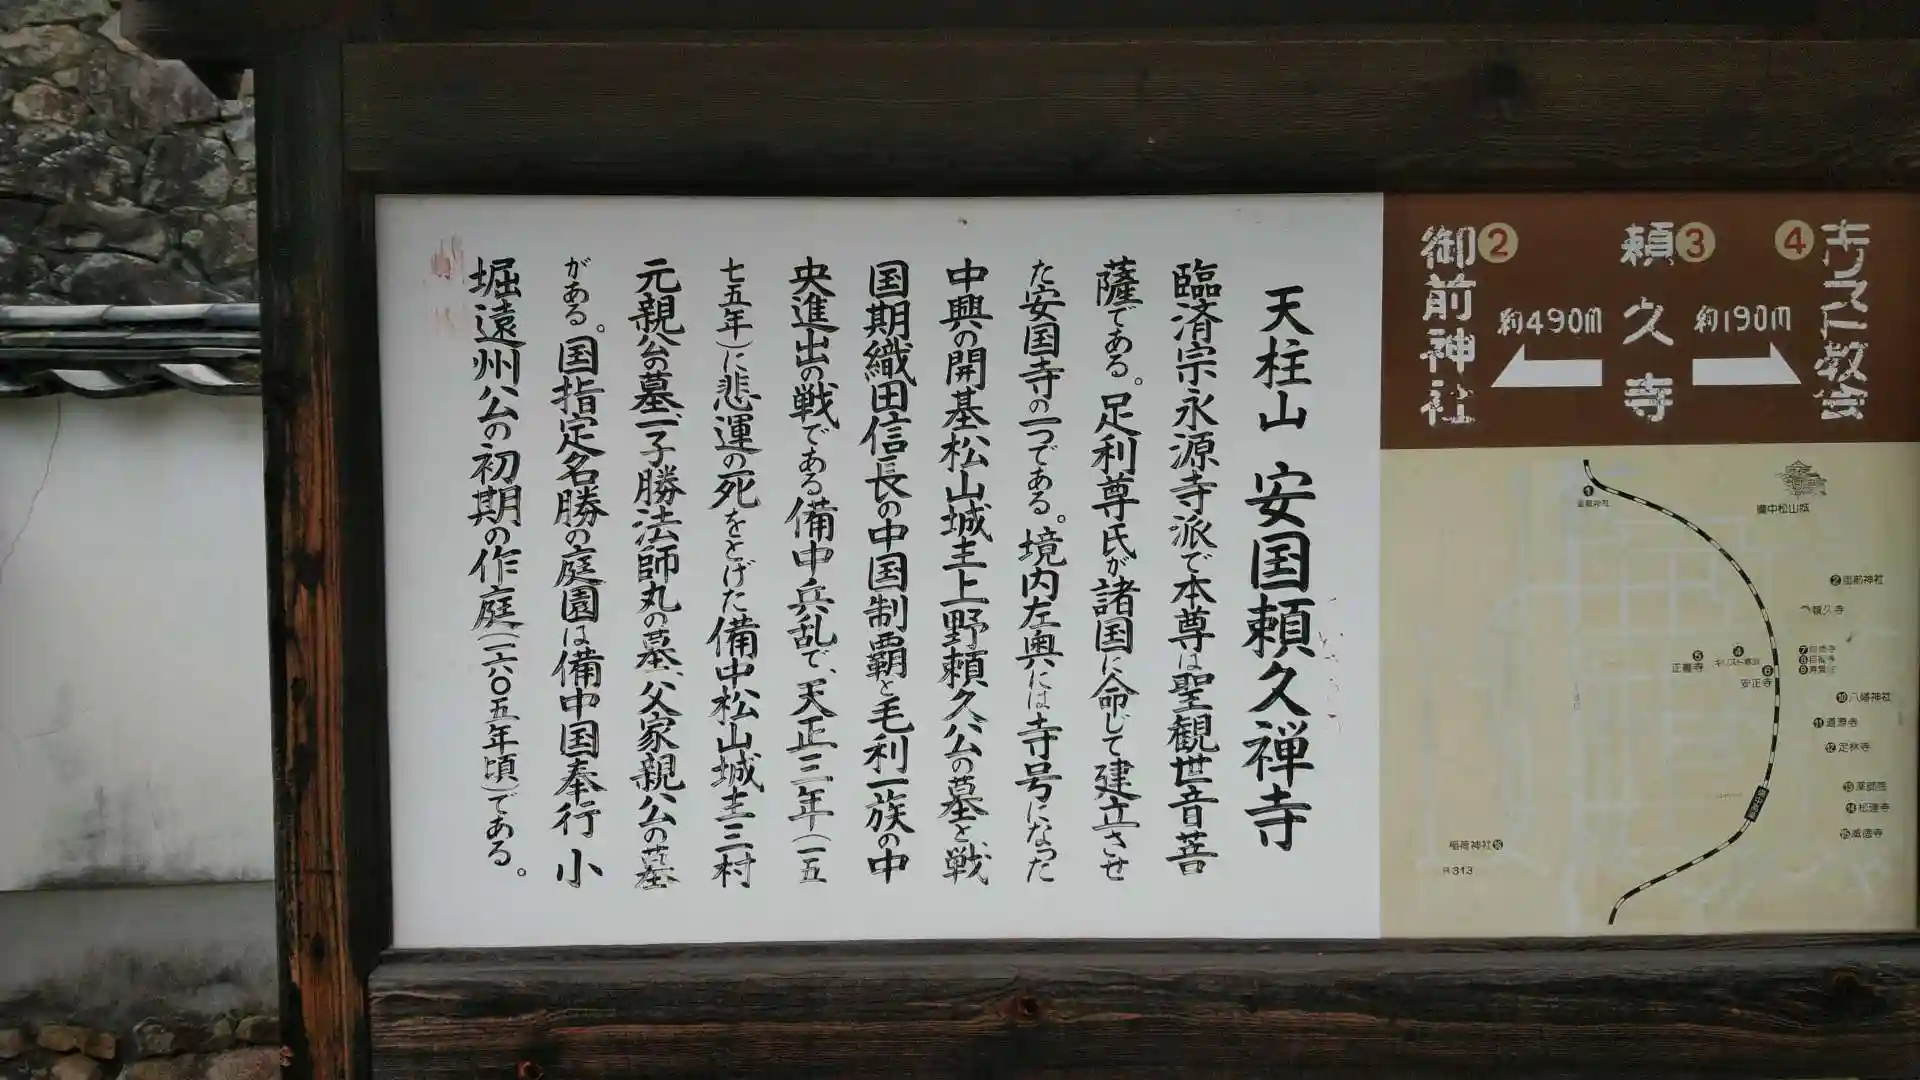 天柱山 安国頼久禅寺
臨済宗永源寺派で本尊は聖観世音菩
薩である。足利尊氏が諸国に命じて建立させ
た安国寺の一つである。境内左奥には寺号になった
中興の開基松山城主上野頼久公の墓と戦
国期織田信長の中国制覇と毛利一族の中
央進出の戦である備中兵乱で、天正三年(一五
七五年)に悲運の死をとげた備中松山城主三村
元親公の墓、一子勝法師丸の墓、父家親公の墓
がある。国指定名勝の庭園は備中国奉行 小
堀遠州公の初期の作庭(一六〇五年頃)である。
御前神社
2
約490m
頼久寺
3
約190m
4
キリスト教会
1
備中松山城
2 御前神社
頼久寺
5
正善寺
4
キリスト教会
6
安正寺
7
8
9
10 八幡神社
11 道源寺
12 定林寺
13 薬師院
14 松連寺
15 威徳寺
稲荷神社 16
R313